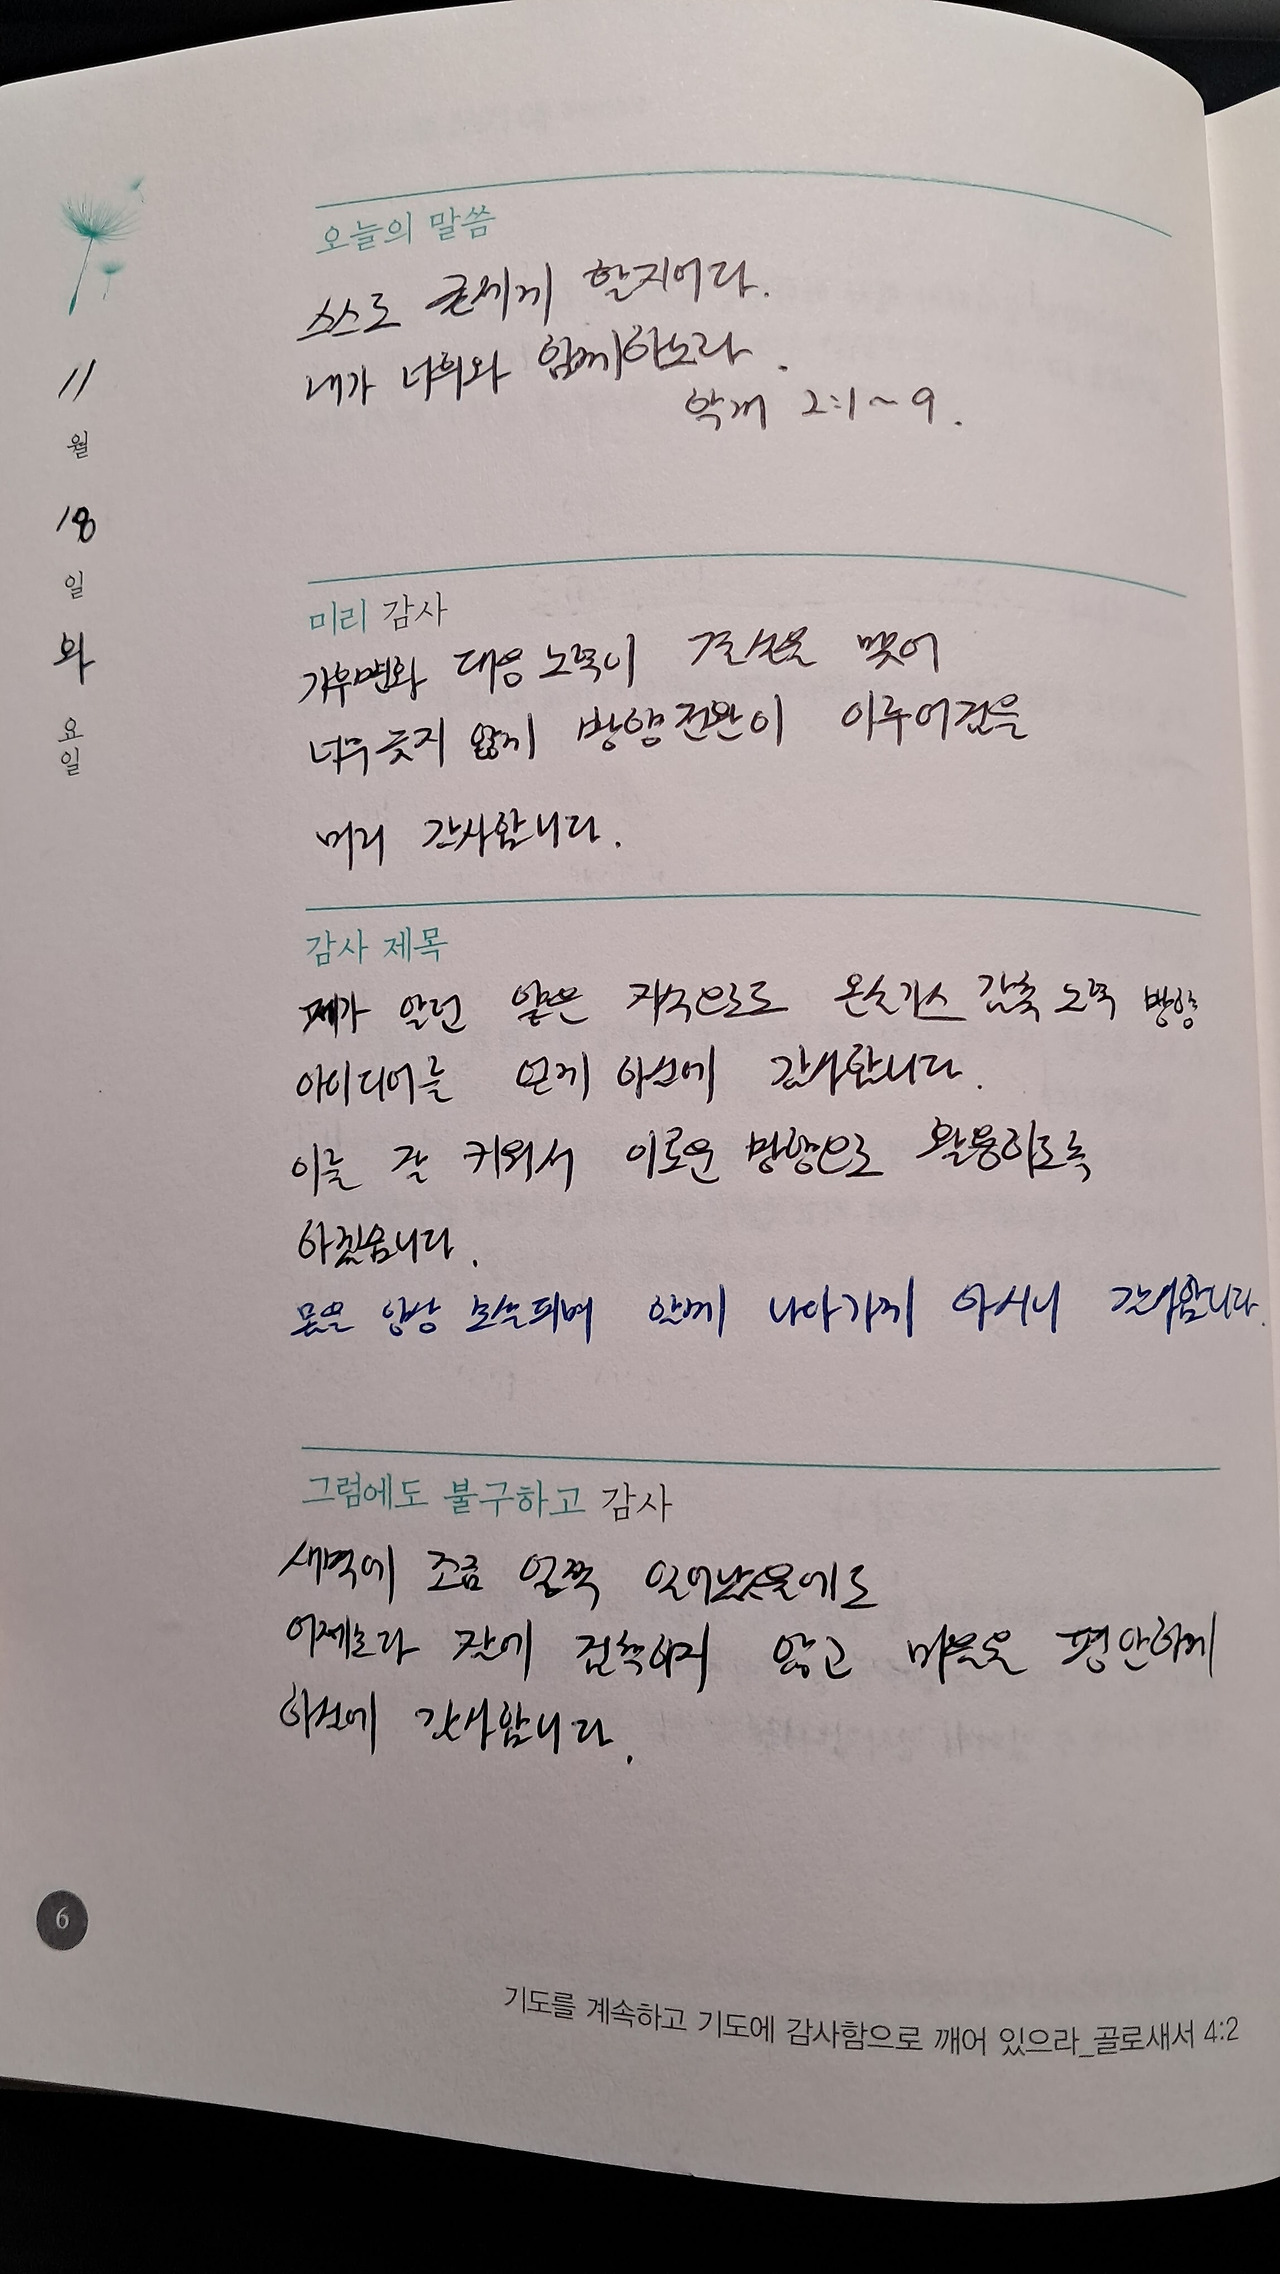 오늘의 말씀
스스로 굳세게 할지어다.
내가 너희와 함께하노라.
학개 2:1~9.
11
월
18
일
화
요일
미리 감사
기후변화 대응 노력이 결실을 맺어
너무 늦지 않게 방향전환이 이루어짐을
미리 감사합니다.
감사 제목
제가 알던 얇은 지식으로도 온실가스 감축 노력 방향
아이디어를 얻게 하심에 감사합니다.
이를 잘 키워서 이로운 방향으로 활용하도록
하겠습니다.
항상 함께 나아가게 하시니 감사합니다.
그럼에도 불구하고 감사
새벽에 조금 일찍 일어났음에도
어제보다 잠에 집착하지 않고 마음을 평안하게
하심에 감사합니다.
6
기도를 계속하고 기도에 감사함으로 깨어 있으라_골로새서 4:2